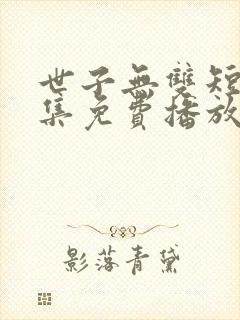 世子無雙短
集免費播放
影落青黛